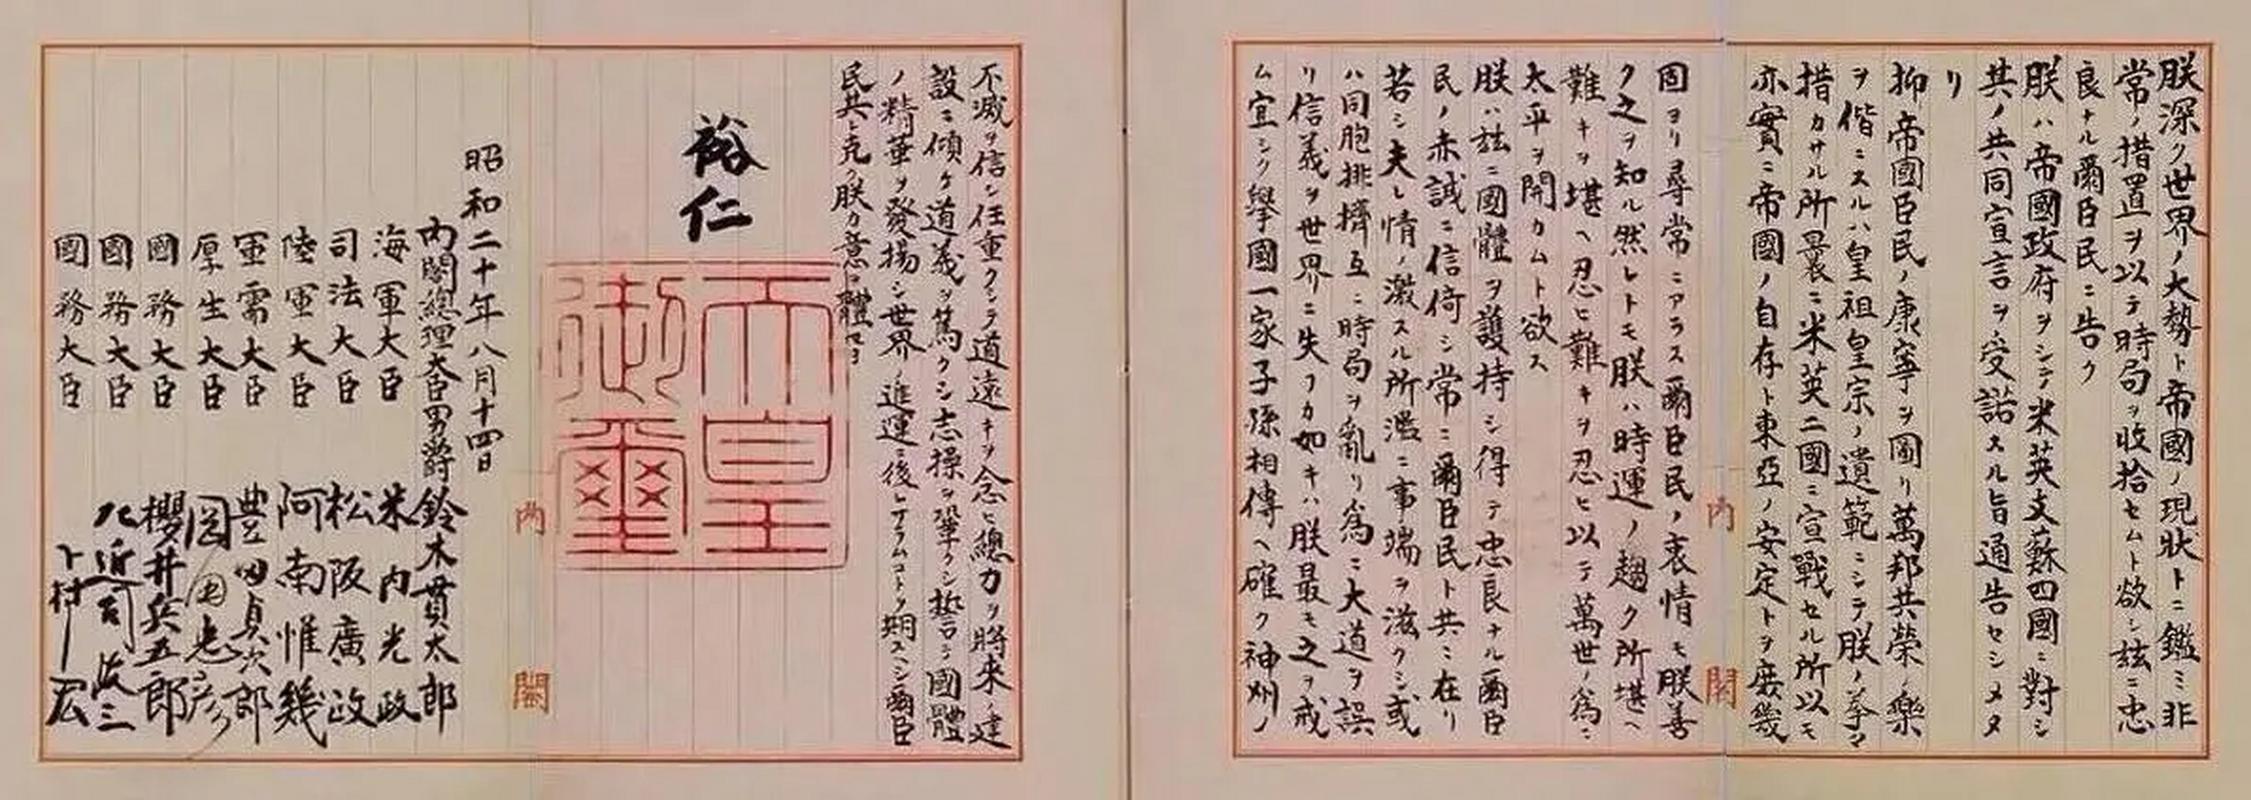 朕深ク世界ノ大勢ト帝國ノ現狀トニ鑑ミ非
常ノ措置ヲ以テ時局ヲ收拾セムト欲シ玆ニ忠
良ナル爾臣民ニ告ク
朕ハ帝國政府ヲシテ米英支蘇四國ニ對シ
其ノ共同宣言ヲ受諾スル旨通告セシメタ
リ
抑〻帝國臣民ノ康寧ヲ圖リ萬邦共榮ノ樂
ヲ偕ニスルハ皇祖皇宗ノ遺範ニシテ朕ノ拳〻
措カサル所曩ニ米英二國ニ宣戰セル所以モ
亦實ニ帝國ノ自存ト東亞ノ安定トヲ庶幾
固ヨリ尋常ニアラス爾臣民ノ衷情モ朕善
ク之ヲ知ル然レトモ朕ハ時運ノ趨ク所堪ヘ
難キヲ堪ヘ忍ヒ難キヲ忍ヒ以テ萬世ノ爲ニ
太平ヲ開カムト欲ス
朕ハ玆ニ國體ヲ護持シ得テ忠良ナル爾臣
民ノ赤誠ニ信倚シ常ニ爾臣民ト共ニ在リ
若シ夫レ情ノ激スル所濫ニ事端ヲ滋クシ或
ハ同胞排擠互ニ時局ヲ亂リ爲ニ大道ヲ誤
リ信義ヲ世界ニ失フカ如キハ朕最モ之ヲ戒
ム宜シク擧國一家子孫相傳ヘ確ク神州ノ
内閣
不滅ヲ信シ任重クシテ道遠キヲ念ヒ總力ヲ將來ノ建
設ニ傾ケ道義ヲ篤クシ志操ヲ鞏クシ誓テ國體
ノ精華ヲ發揚シ世界ノ進運ニ後レサラムコトヲ期スヘシ爾臣
民其レ克ク朕カ意ヲ體セヨ
裕仁
天皇
御璽
内閣
昭和二十年八月十四日
内閣總理大臣男爵 鈴木貫太郎
海軍大臣 米内光政
司法大臣 松阪廣政
陸軍大臣 阿南惟幾
軍需大臣 豊田貞次郎
厚生大臣 岡田忠彦
國務大臣 櫻井兵五郎
國務大臣 左近司政三
國務大臣 下村宏